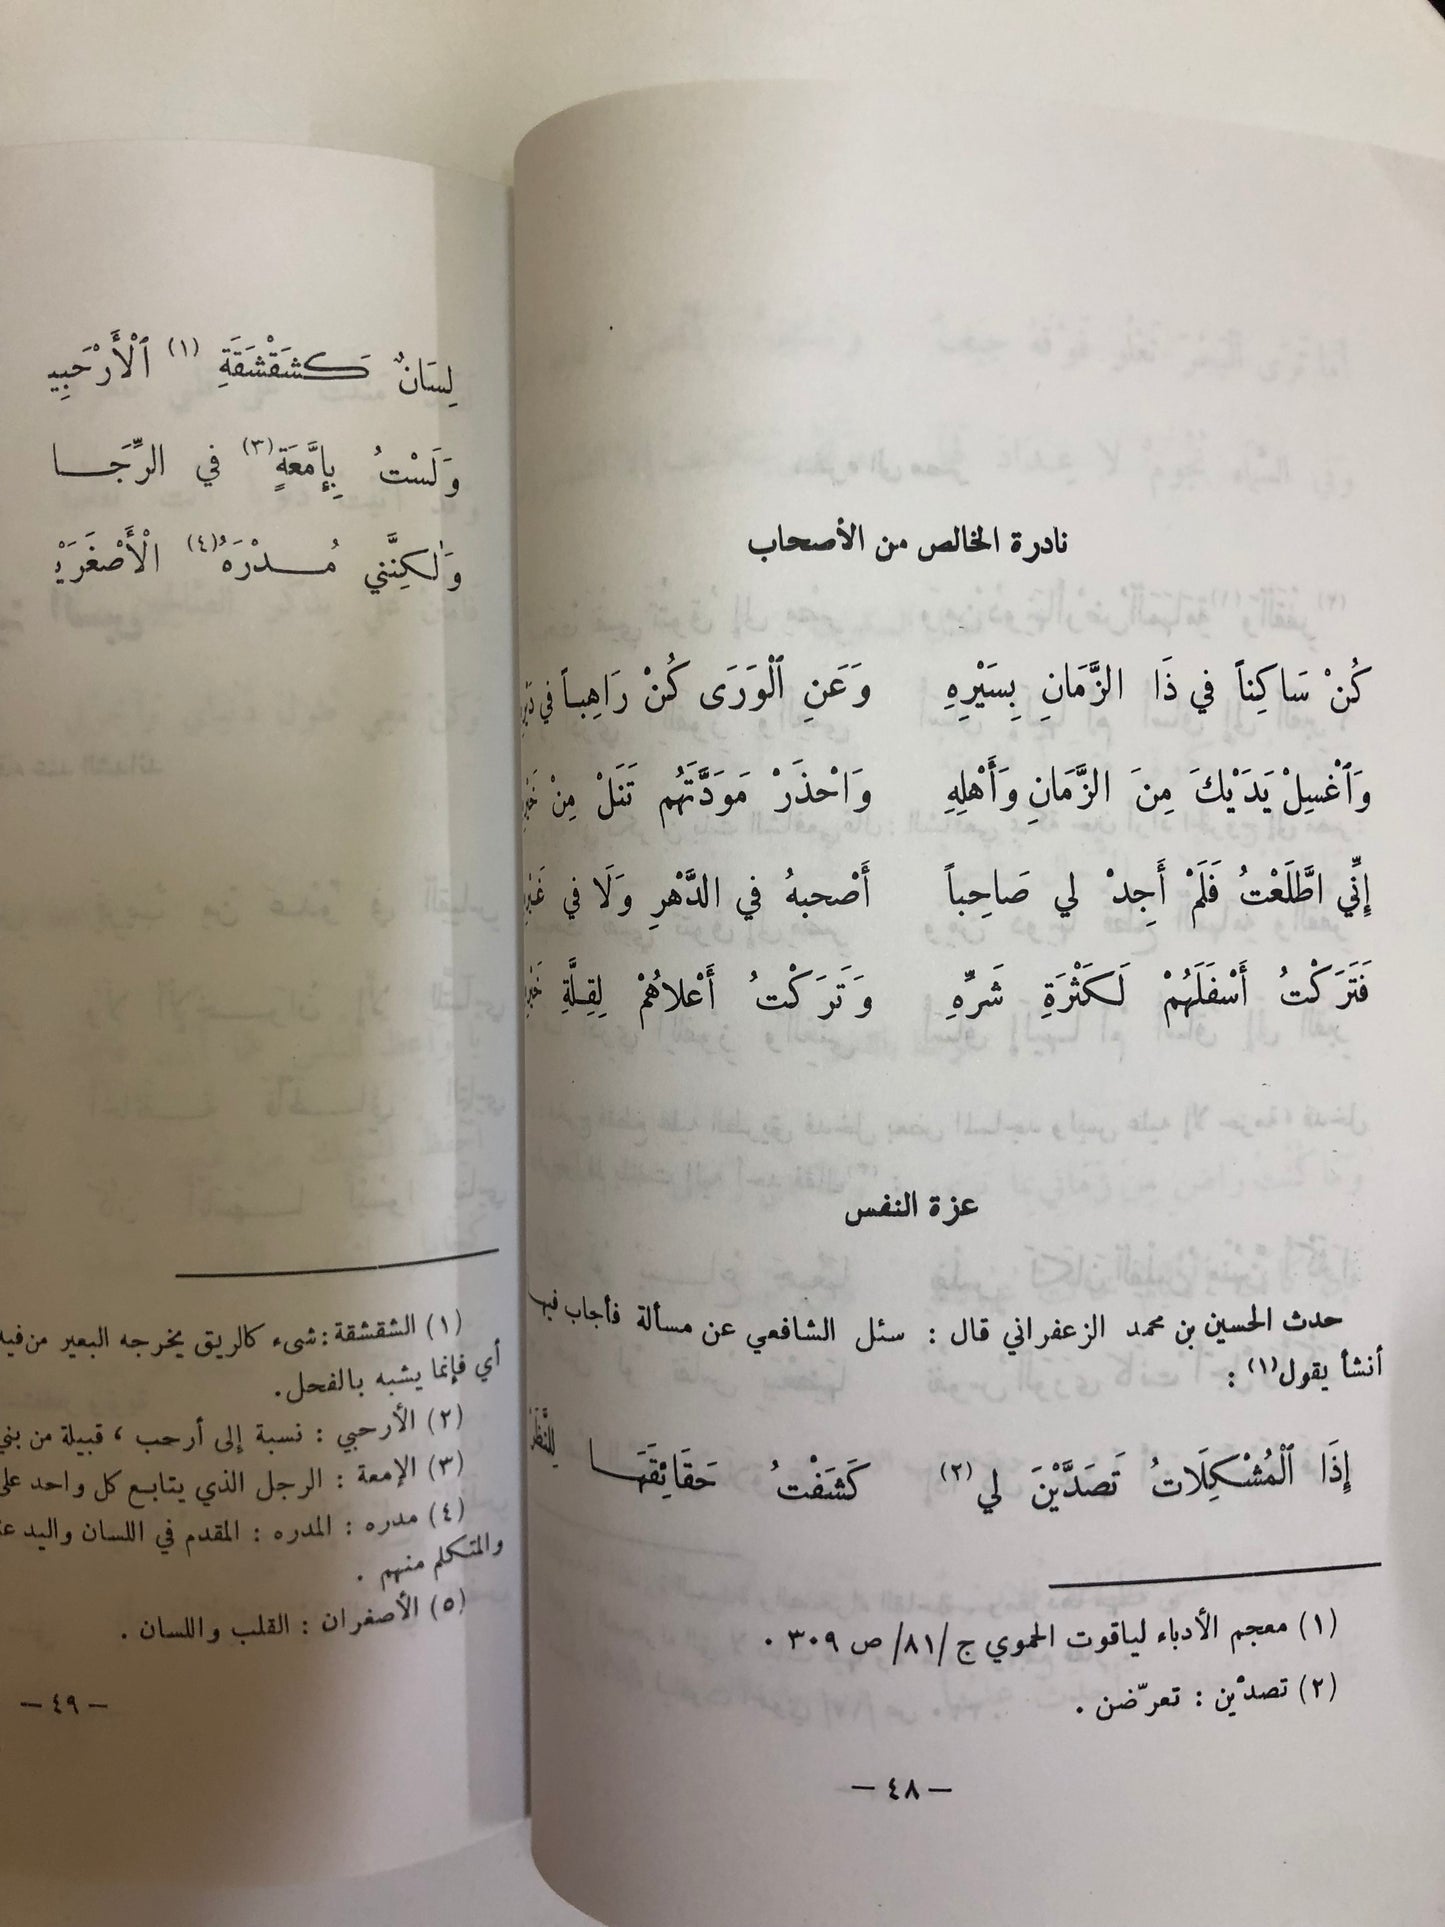 نادرة الخالص من الأصحاب
كُنْ سَاكِناً في ذَا الزَّمَانِ بِسَيْرِهِ وَعَنِ ٱلْوَرَى كُنْ رَاهِباً في
وَٱغْسِلْ يَدَيْكَ مِنَ الزَّمَانِ وَأَهْلِهِ وَاحْذَرْ مَوَدَّتَهُم تَنَلْ مِنْ
إِنِّي اطَّلَعْتُ فَلَمْ أَجِدْ لي صَاحِباً أَصْحبهُ في الدَّهْرِ وَلَا في
فَتَرَكْتُ أَسْفَلَهُمْ لَكَثْرَةِ شَرِّهِ وَتَرَكْتُ أَعْلاهُمْ لِقِلَّةِ
عزة النفس
حدث الحسين بن محمد الزعفراني قال : سئل الشافعي عن مسألة فأجاب فيها
أنشأ يقول(١) :
إِذَا ٱلْمُشْكِلَاتُ تَصَدَّيْنَ لي(٢) كَشَفْتُ حَقَائِقَهَا
(١) معجم الأدباء لياقوت الحموي ج /٨١/ ص ٣٠٩ .
(٢) تصدّين : تعرّضن .
— ٤٨ —
لِسَانٌ كَشَقْشَقَةِ (١) ٱلْأَرْحَبِي
وَلَسْتُ بِإِمَّعَةٍ(٣) في الرِّجَا
وَلٰكِنَّني مُدْرَهُ(٤) الْأَصْغَرَيْ
(١) الشقشقة : شيء كالريق يخرجه البعير من فيه
أي فإنما يشبه بالفحل .
(٢) الأرحبي : نسبة إلى أرحب ، قبيلة من بني
(٣) الإمعة : الرجل الذي يتابع كل واحد على
(٤) مدره : المدره : المقدم في اللسان واليد
والمتكلم منهم .
(٥) الأصغران : القلب واللسان .
— ٤٩ —